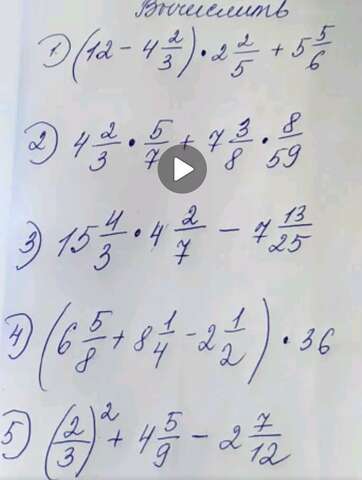 Вычислить
1) (12 - 4 2/3) · 2 2/5 + 5 5/6
2) 4 2/3 · 5/7 + 7 3/8 · 8/59
3) 15 4/3 · 4 2/7 - 7 13/25
4) (6 5/8 + 8 1/4 - 2 1/2) · 36
5) (2/3)² + 4 5/9 - 2 7/12